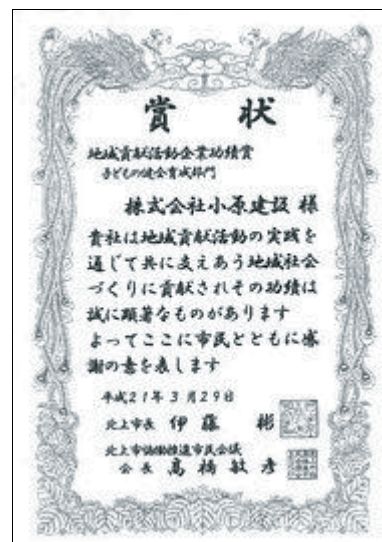 賞状
地域貢献活動企業功績賞
子どもの健全育成部門
株式会社小原建設 様
貴社は地域貢献活動の実践を
通じて共に支えあう地域社会
づくりに貢献されその功績は
誠に顕著なものがあります
よってここに市民とともに感
謝の意を表します
平成21年3月29日
北上市長 伊藤 彬
北上市協働推進市民会議
会長 高橋敏彦